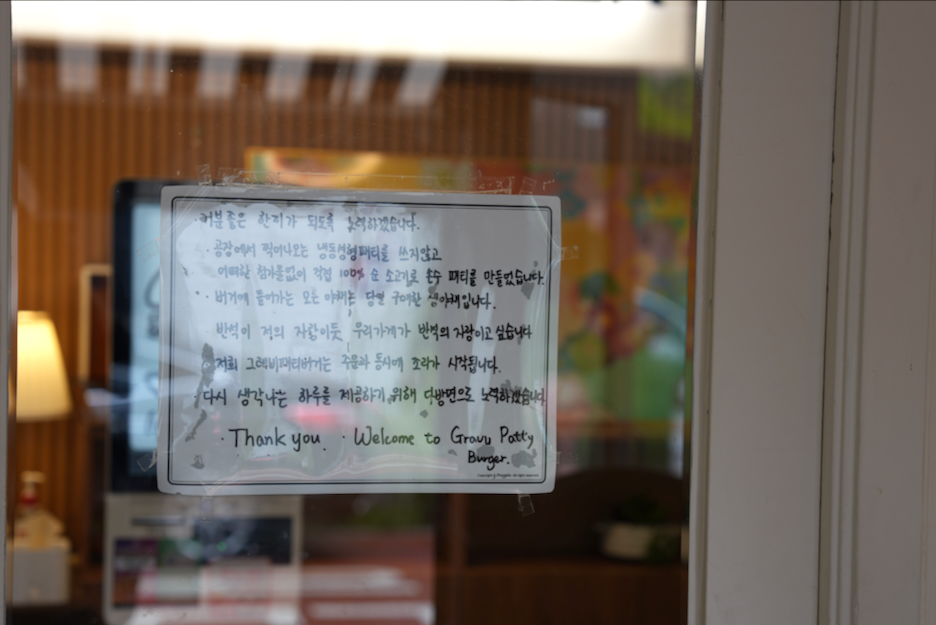 · 기분좋은 한끼가 되도록 노력하겠습니다.
· 공장에서 찍어나오는 냉동성형패티를 쓰지않고
어떠한 첨가물없이 직접 100% 순 소고기로 손수 패티를 만들었습니다.
· 버거에 들어가는 모든 야채는 당일 구매한 생야채입니다.
반력이 정의 자랑이듯 우리가게가 반력의 자랑이고 싶습니다
저희 그레비패티버거는 주문과 동시에 조리가 시작됩니다.
다시 생각나는 하루를 제공하기 위해 다방면으로 노력하겠습니다.
· Thank you. · Welcome to Gravy Patty
Burger.